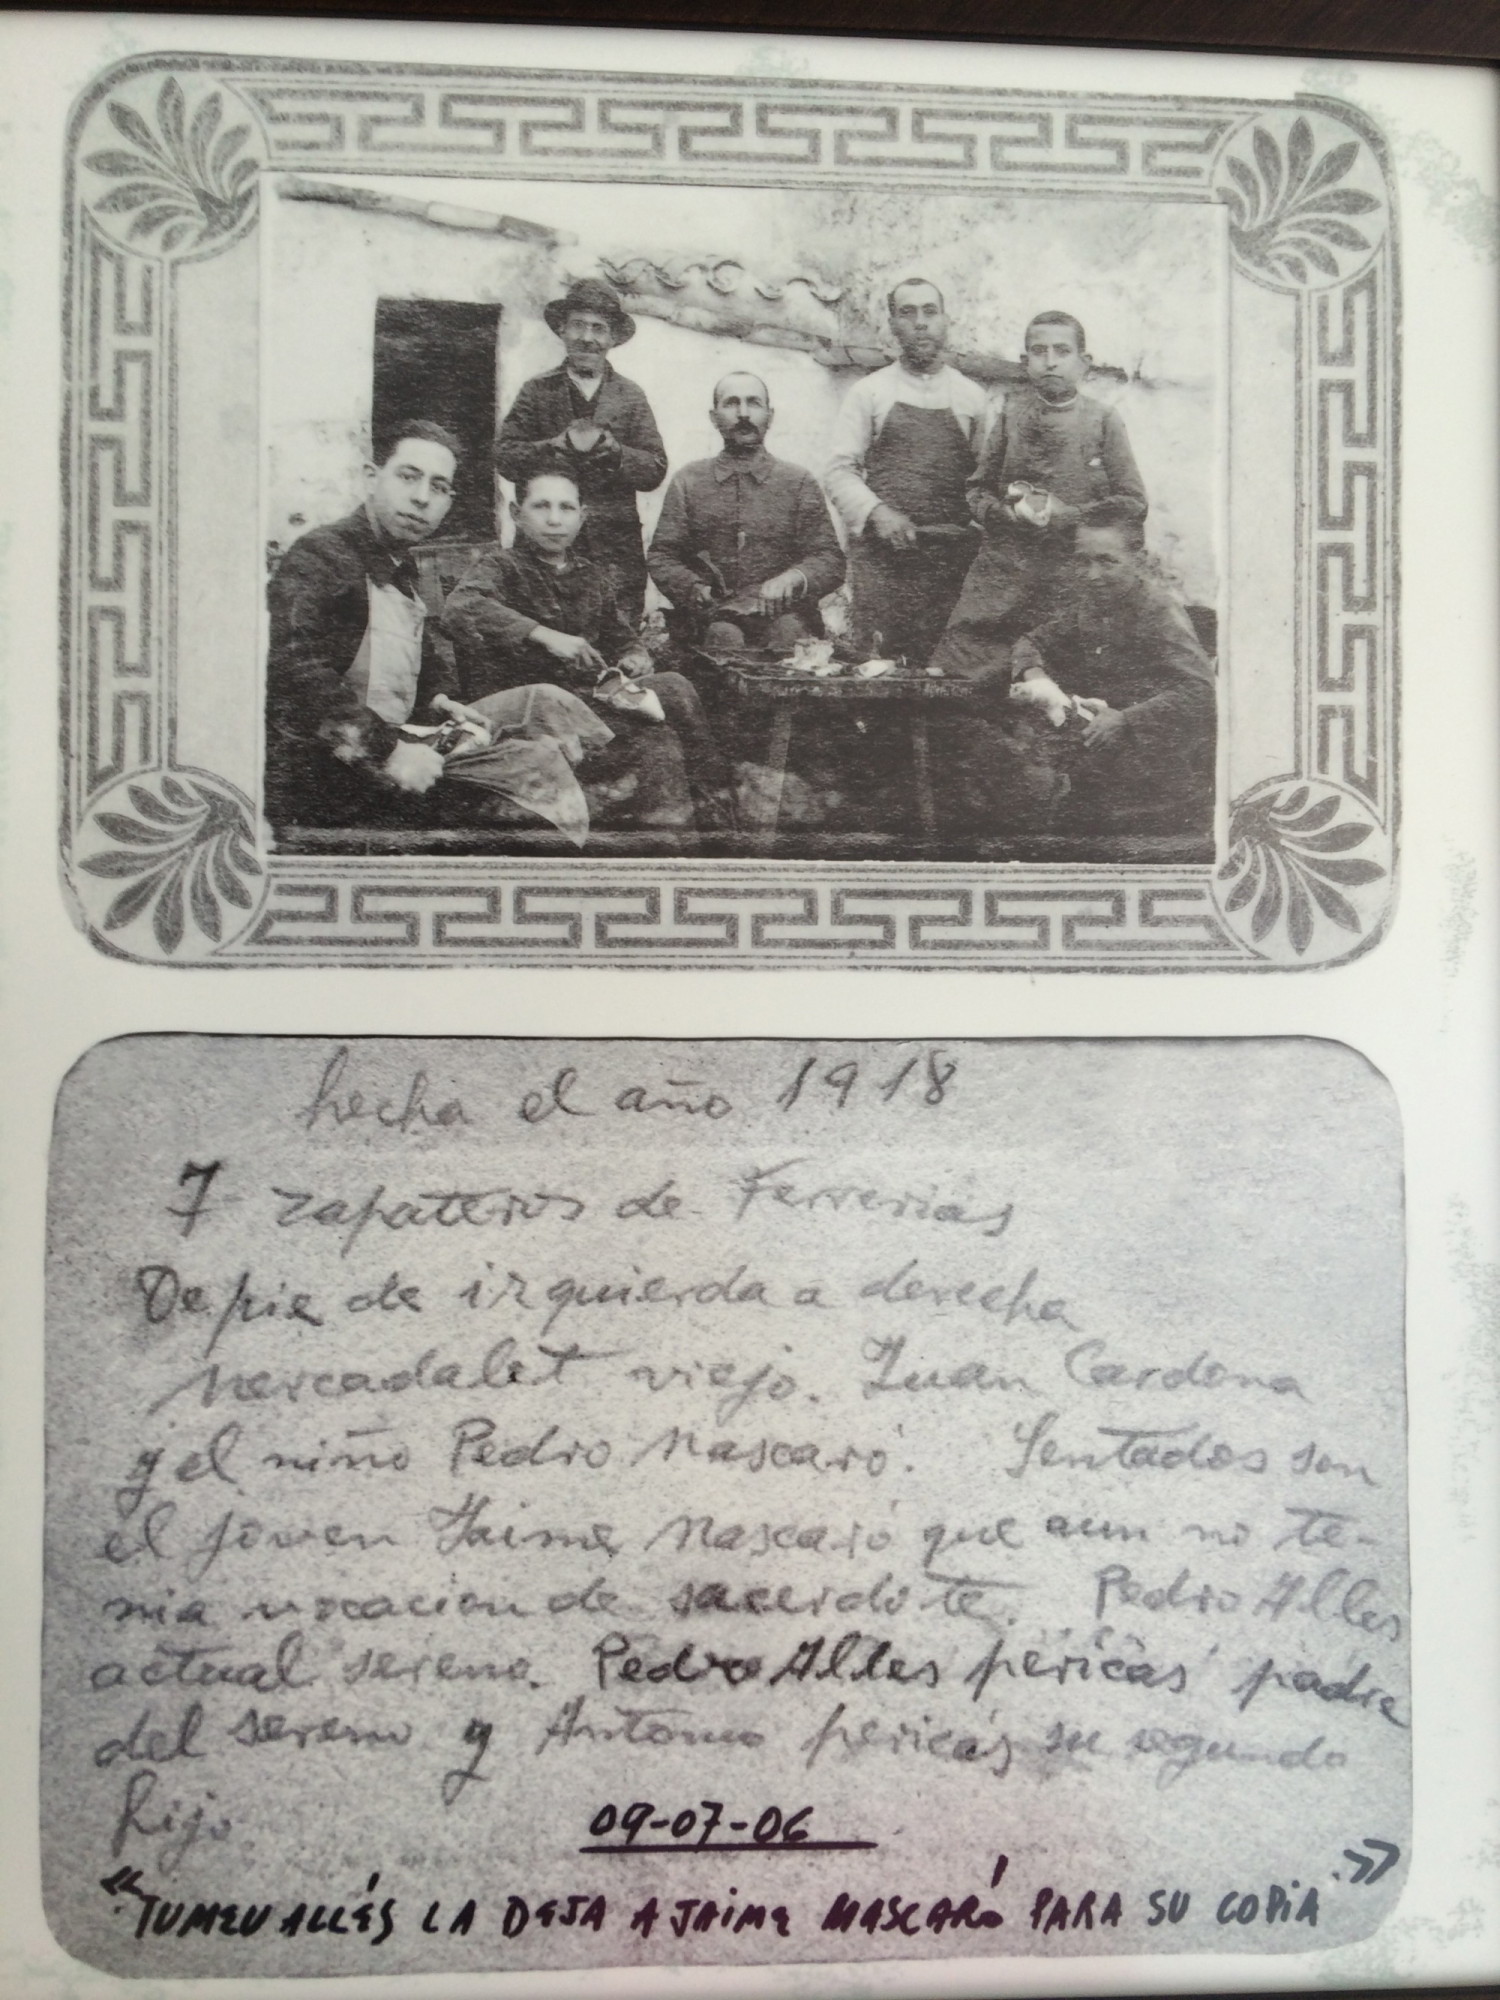 hecha el año 1918
7 zapateros de Ferrerias
De pie de izquierda a derecha
Mercadalet viejo. Juan Cardona
y el niño Pedro Mascaró. Sentados son
el joven Jaime Mascaró que aun no te-
nia vocacion de sacerdote. Pedro Alles
actual sereno. Pedro Alles pericás padre
del sereno y Antonio pericás su segundo
hijo
09-07-06
"TUMEU ALLÉS LA DEJA A JAIME MASCARÓ PARA SU COPIA"